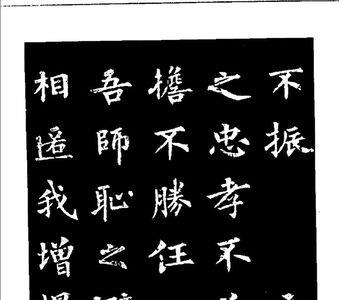 不振
之忠孝不
擔不勝任
吾師恥之
相我增